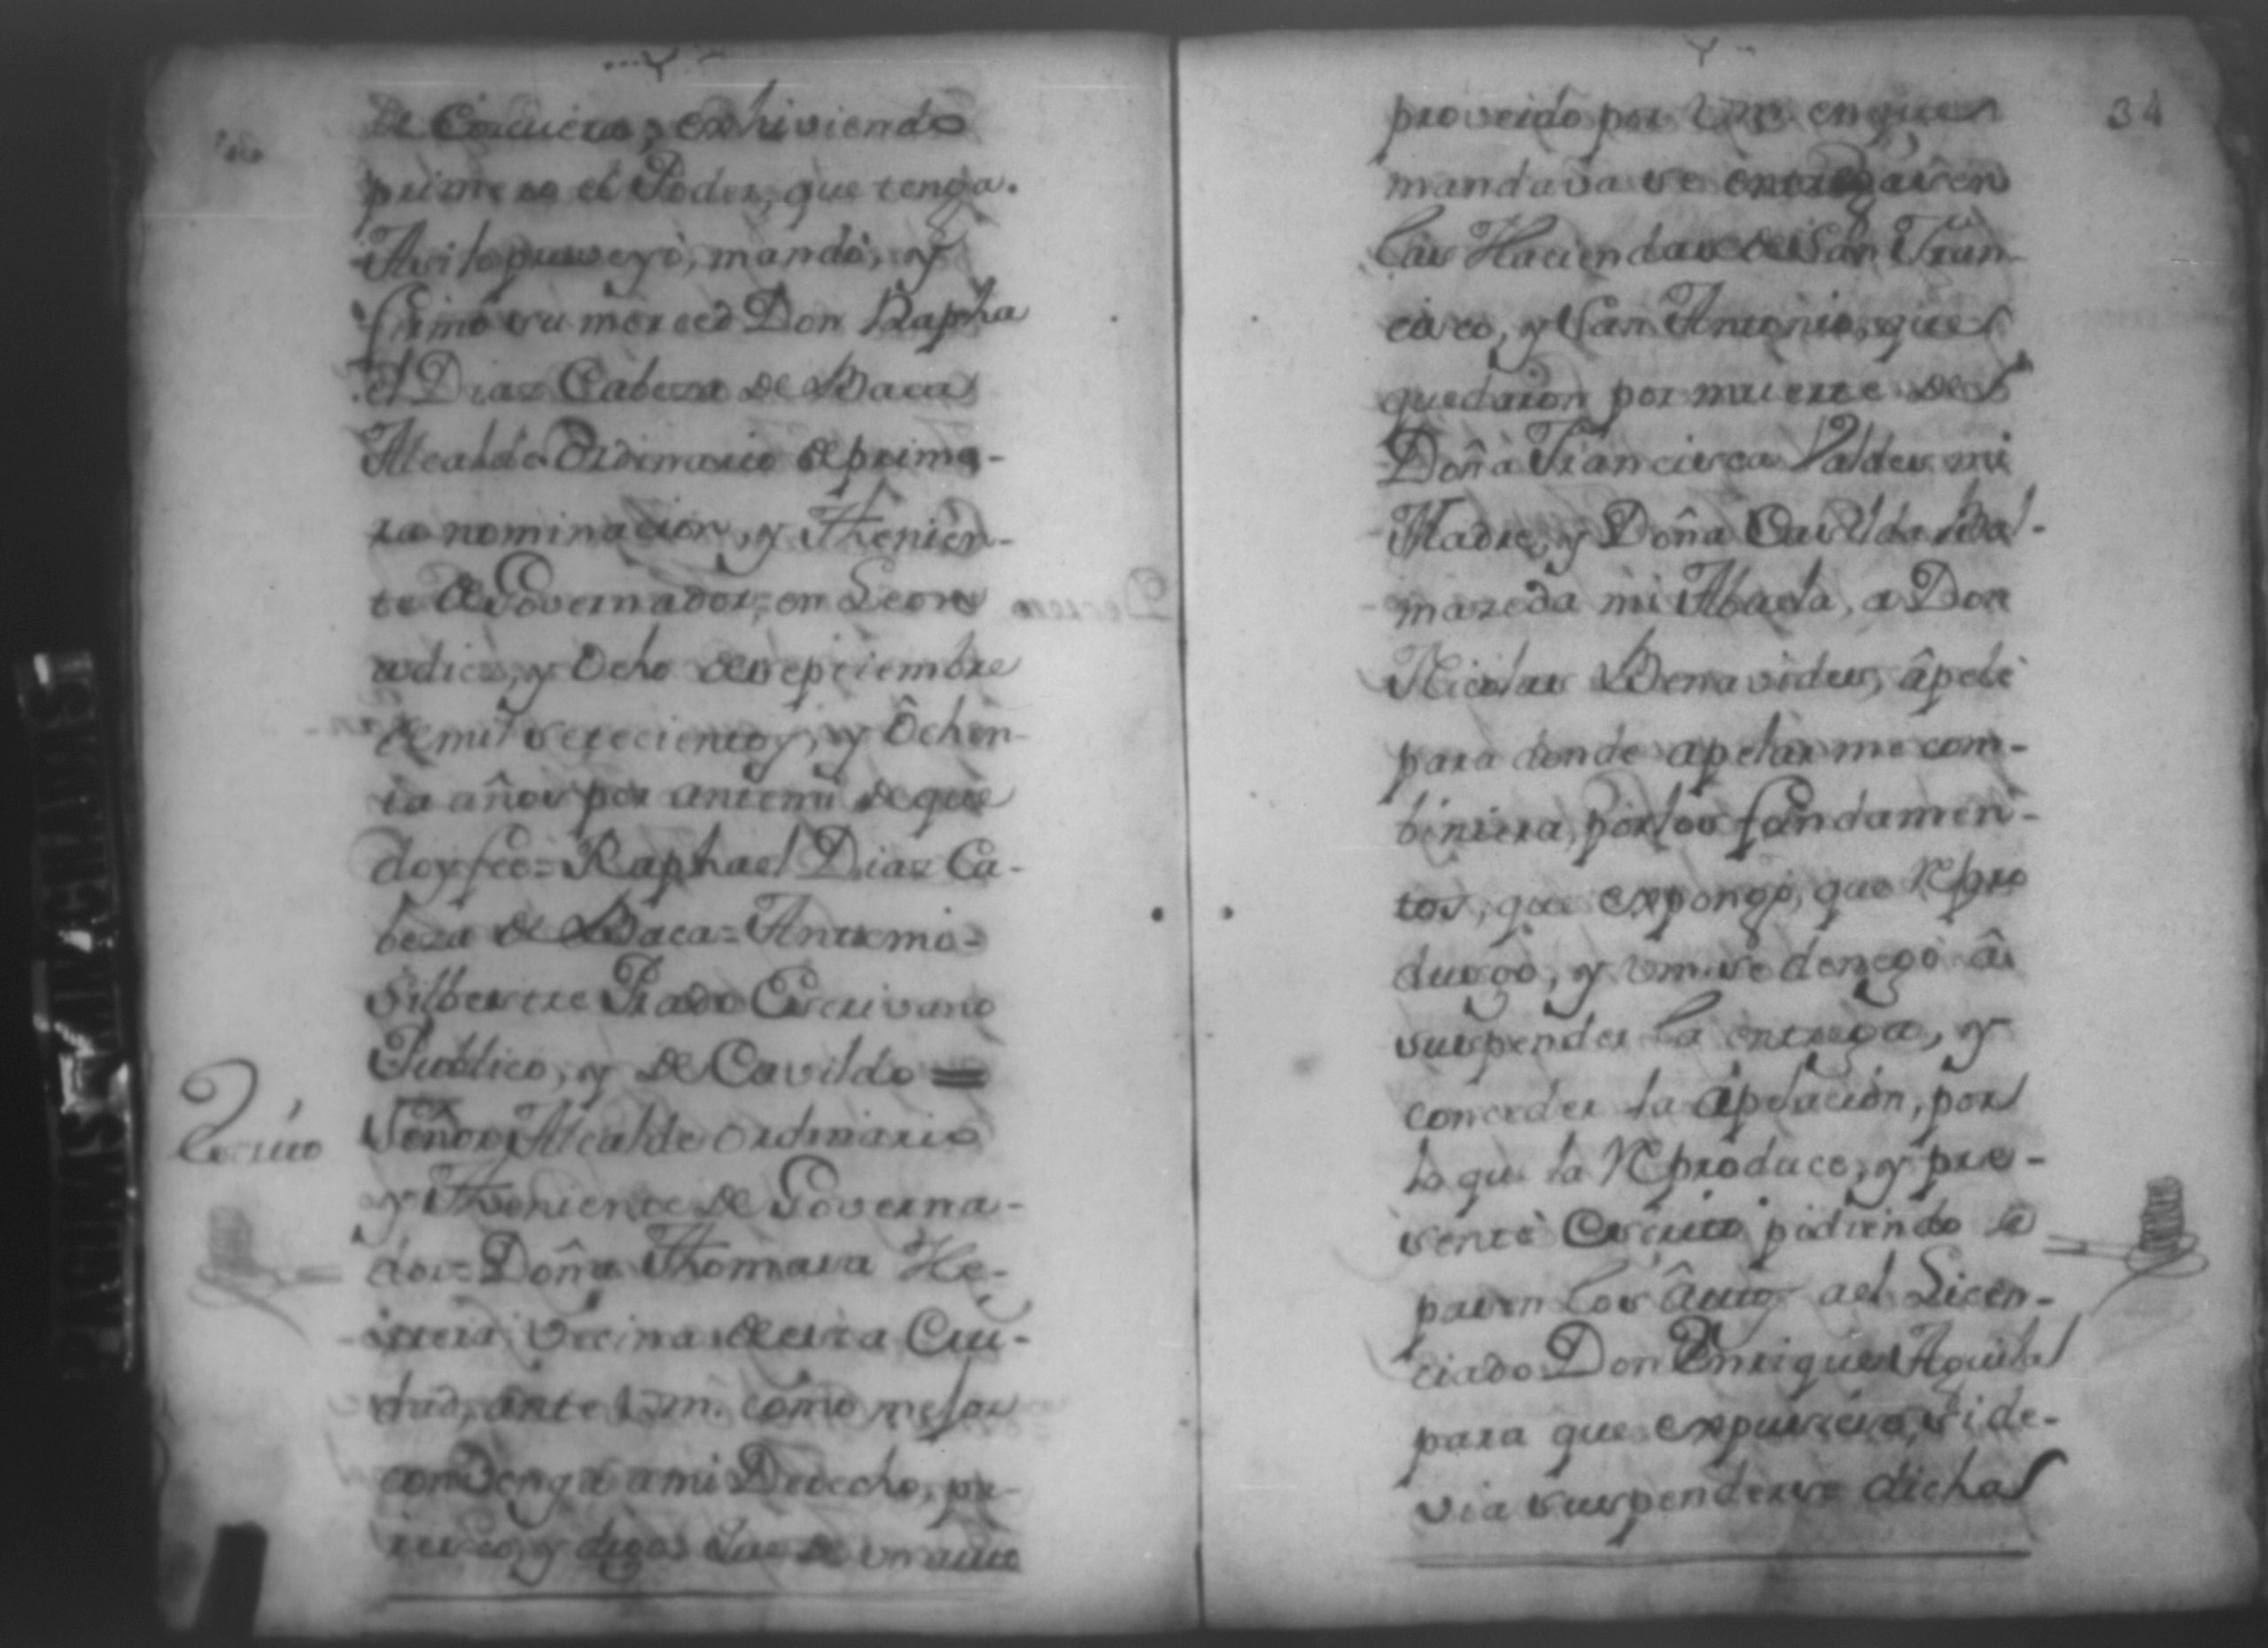 exhiviendo
primero el Poder, que tenga.
Asi lo proveyó, mandó, y
firmó su merced Don Rapha
el Diaz Cabeza de Baca
Alcalde Ordinario de prime-
ra nominacion, y Thenien-
te de Governador, en Leon
a diez, y Ocho de septiembre
de mil setecientos, y Ôchen-
ta años por antemi de que
doy feé = Raphael Diaz Ca-
beza de Baca = Antemi =
Silbestre Prado Escrivano
Publico, y de Cavildo =
Escrito
Señor Alcalde Ordinario
y Theniente de Governa-
dor = Doña Thomasa He-
rrera vecina de esta Ciu-
dad, ante Vm. como mejor
convenga a mi Derecho, pa-
resco, y digo: Que de un auto
34
proveido por Vm. en que
mandava se entregasen
las Haciendas de San Fran-
cisco, y San Antonio, que
quedaron por muerte de
Doña Francisca Valdes mi
Madre, y Doña Casilda Bal-
mazeda mi Abuela, a Don
Nicolas Benavides, âpelé
para donde apelar me com-
biniera, por los fundamen-
tos, que expongo, que Repro
dusgo, y Vm. se denegó â
suspender la entrega, y
conceder la âpelacion, por
lo que la Reproduce, y pre-
sente Escrito pidiendo se
pasen los âutos ael Licen-
ciado Don Enrique Aguila
para que expusiera, si de-
via suspenderse dicha